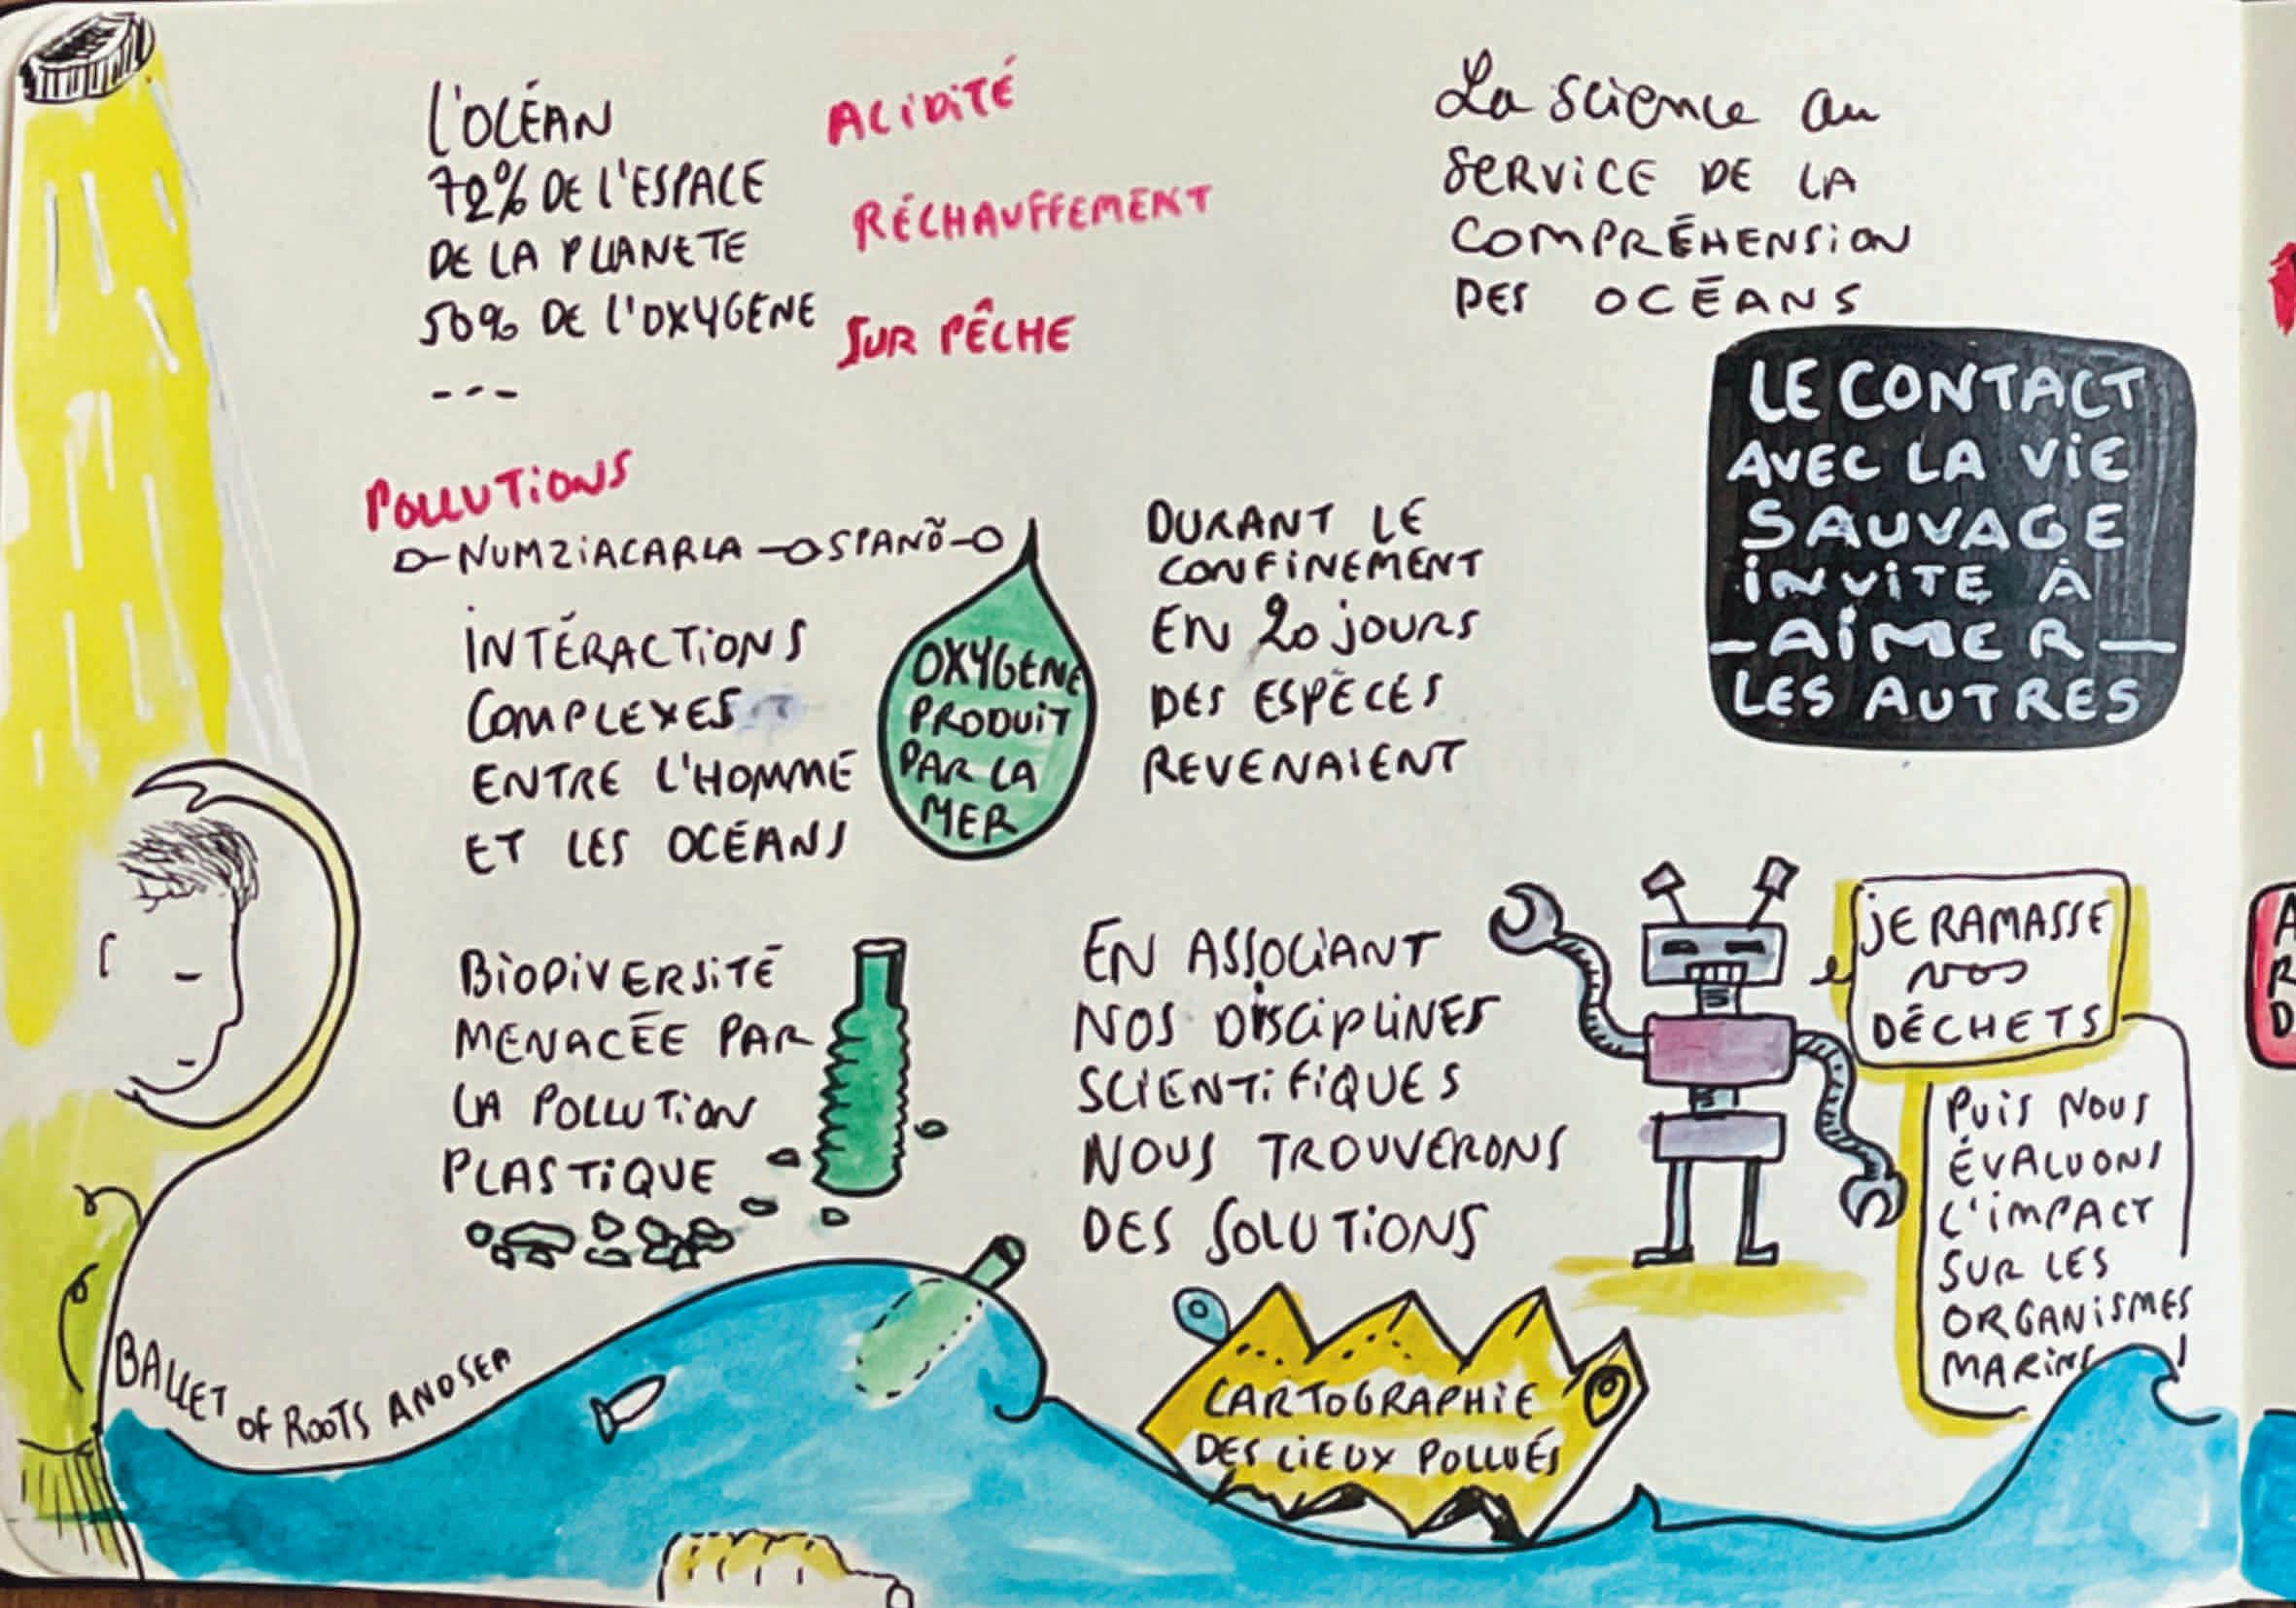 L'OCÉAN
72% DE L'ESPACE
DE LA PLANETE
50% DE L'OXYGENE
---
ACIDITÉ
RÉCHAUFFEMENT
SUR PÊCHE
La science au
SERVICE DE LA
COMPRÉHENSION
DES OCÉANS
LE CONTACT
AVEC LA VIE
SAUVAGE
INVITE À
-AIMER-
LES AUTRES
POLLUTIONS
NUMZIACARLA SPANÕ
INTÉRACTIONS
COMPLEXES
ENTRE L'HOMME
ET LES OCÉANS
OXYGENE
PRODUIT
PAR LA
MER
DURANT LE
CONFINEMENT
EN 20 JOURS
DES ESPÈCES
REVENAIENT
BIODIVERSITÉ
MENACÉE PAR
LA POLLUTION
PLASTIQUE
EN ASSOCIANT
NOS DISCIPLINES
SCIENTIFIQUES
NOUS TROUVERONS
DES SOLUTIONS
JE RAMASSE
NOS
DÉCHETS
PUIS NOUS
ÉVALUONS
L'IMPACT
SUR LES
ORGANISMES
MARINS
BALLET OF ROOTS AND SEA
CARTOGRAPHIE
DES LIEUX POLLUÉS
A
R
D